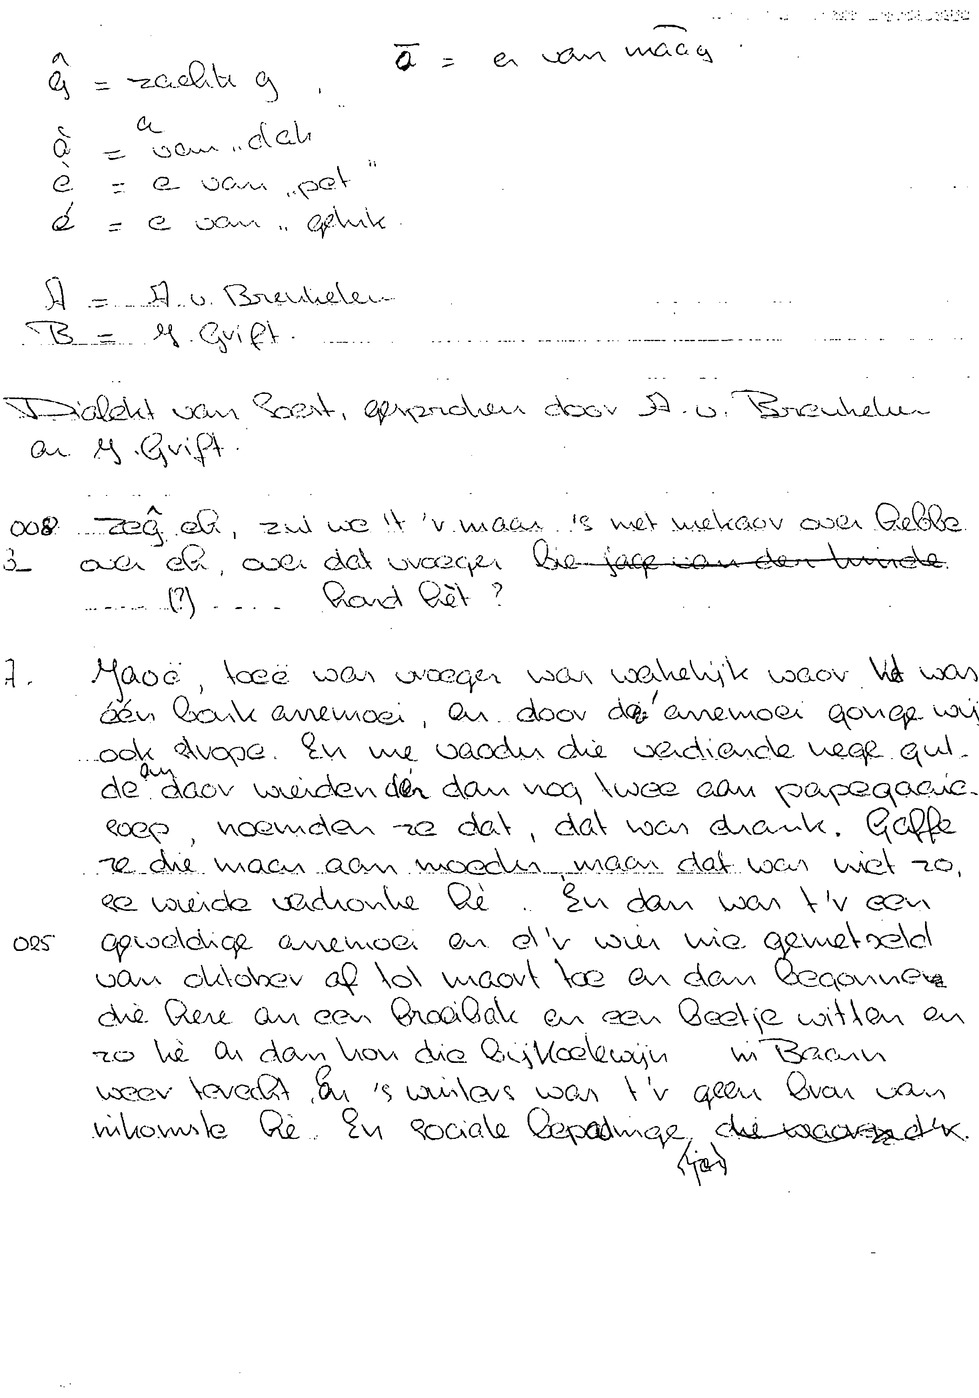 ĝ = zachte g , ā = a van māāg
à = a van „dak"
è = e van „pet"
é = e van „geluk
A = A. v. Breukelen
B = G. Grift.
Dialekt van Soest, gesproken door A. v. Breukelen
en G. Grift.
008 Zeĝ eh, zul we 't 'r maar 's met mekaor over hebbe
B over eh, over dat vroeger die jage van den turde.
...... (?) .... hard hèt?
A. Jaoë, toeë was vroeger was wekelijk waor het was
één bonk annemoei, en door dé annemoei gonge wij
ook strope. En me vaoder die verdiende nege gul-
de en daor wieiden dér dan nog twee aan papegaaie-
soep, noemden ze dat, dat was drank. Gaffe
ze die maar aan moeder, maar dat was niet zo,
ee wierde verdronke hè. En dan was t'r een
025 geweldige annemoei en d'r wier nie gemetseld
van oktober af tot maort toe en dan begonne
die here an een broeibak en een beetje witten en
zo hè en dan kon die bij Koelewijn in Baarn
weer terecht. En 's winters was t'r geen bron van
inkomste hè. En sociale bepalinge, die waore d'r.
(ja)